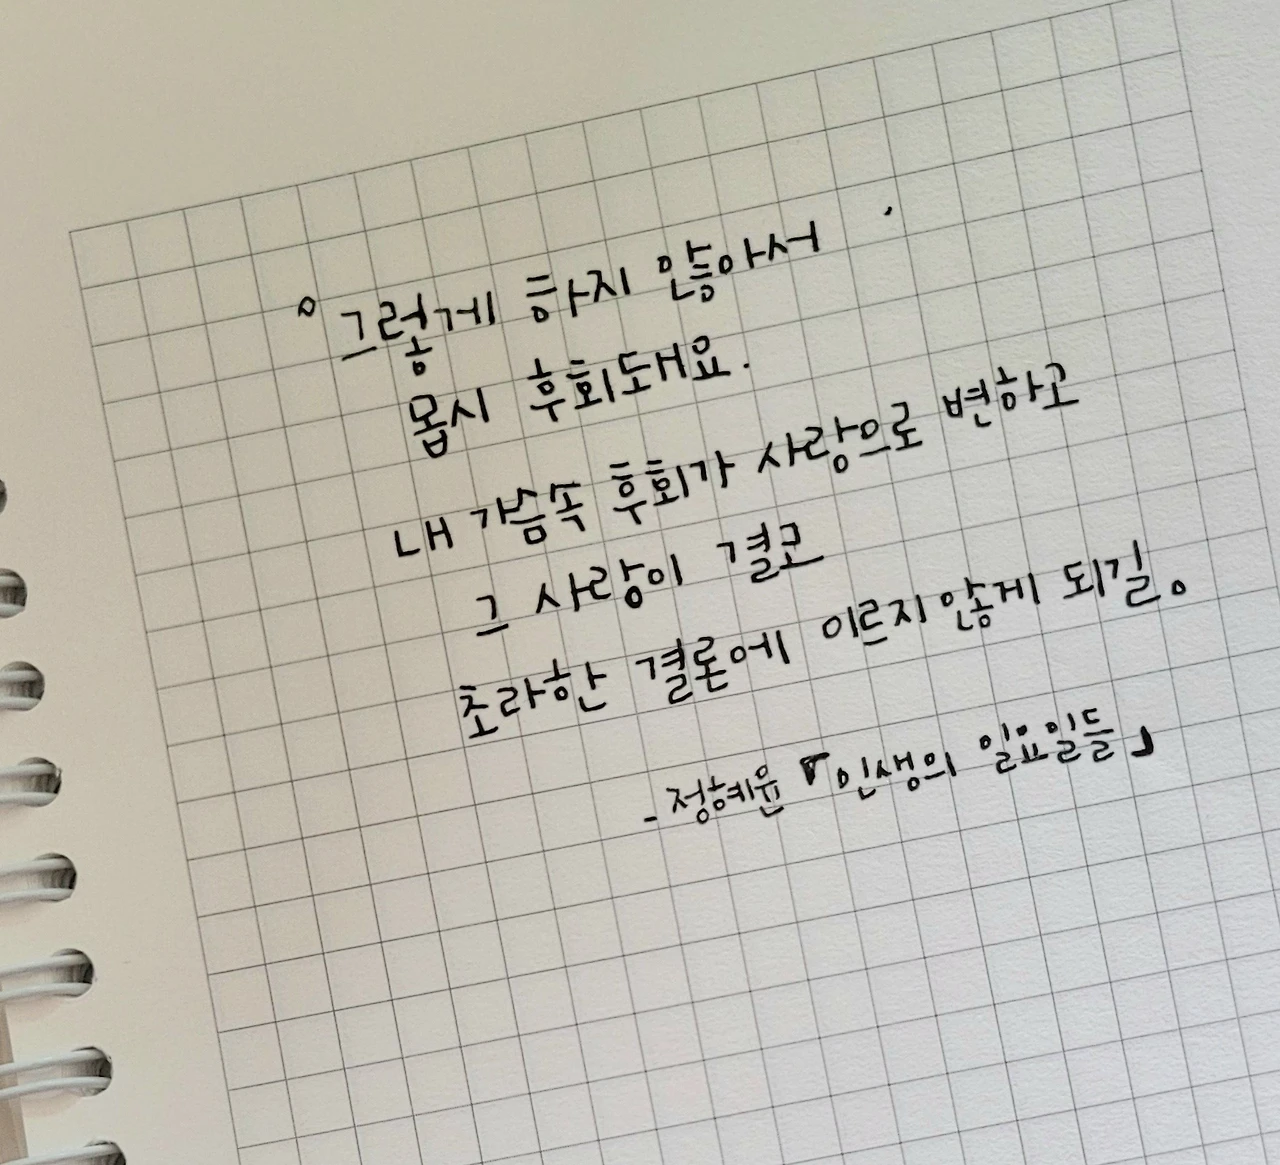 ° 그렇게 하지 않아서
몹시 후회돼요.
내 가슴속 후회가 사랑으로 변하고
그 사랑이 결코
초라한 결론에 이르지 않게 되길。
- 정혜윤 「인생의 일요일들」